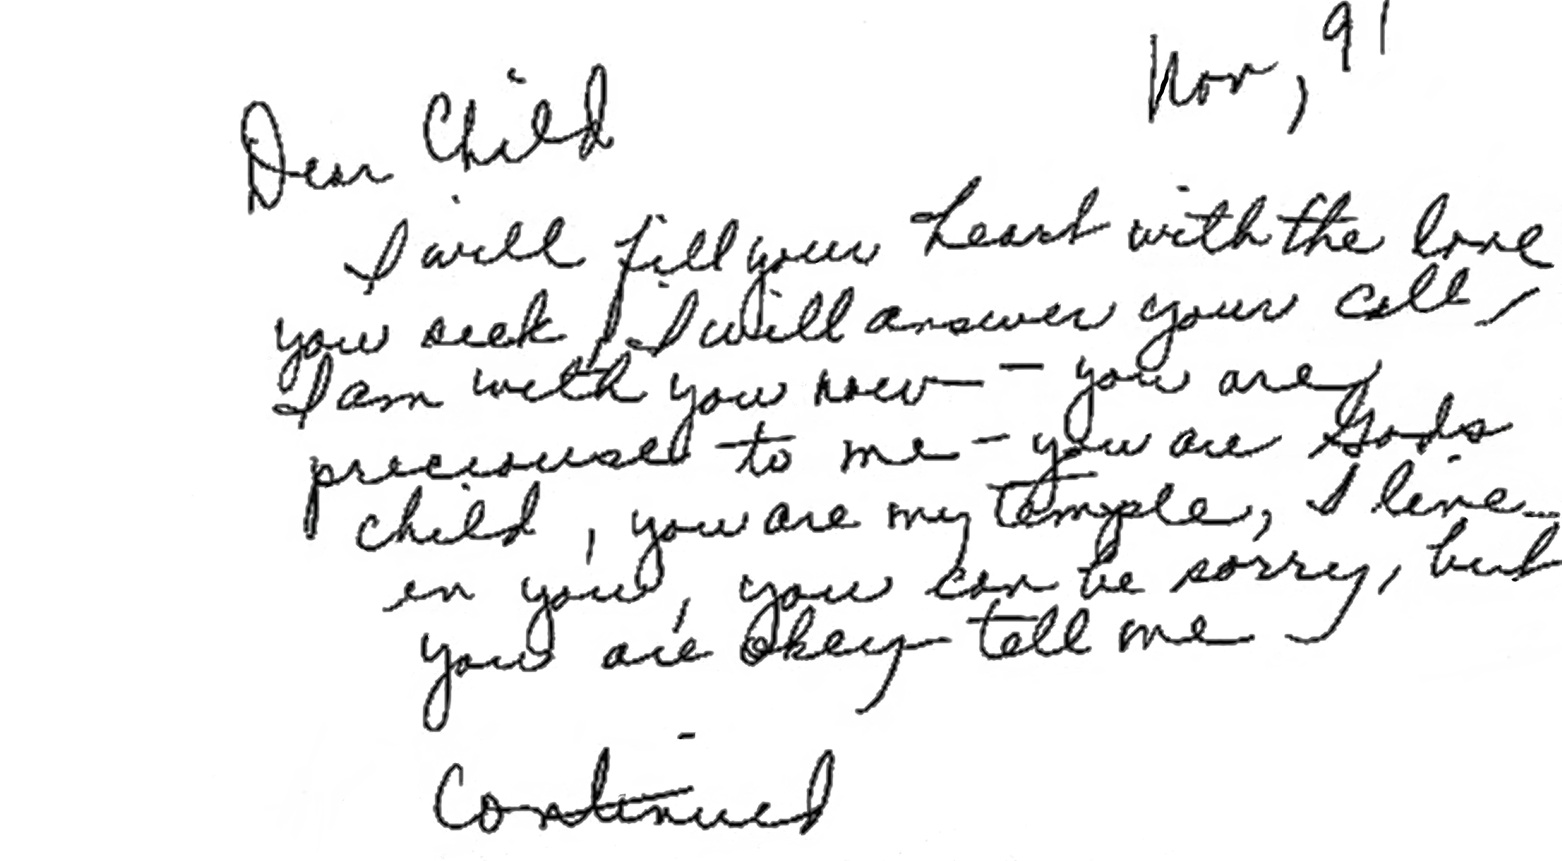 Nov, 91
Dear Child
I will fill your heart with the love
you seek, I will answer your call,
I am with you now — you are
preciouse to me — you are Gods
child, you are my temple, I live
in you, you can be sorry, but
you are okey tell me
Continued